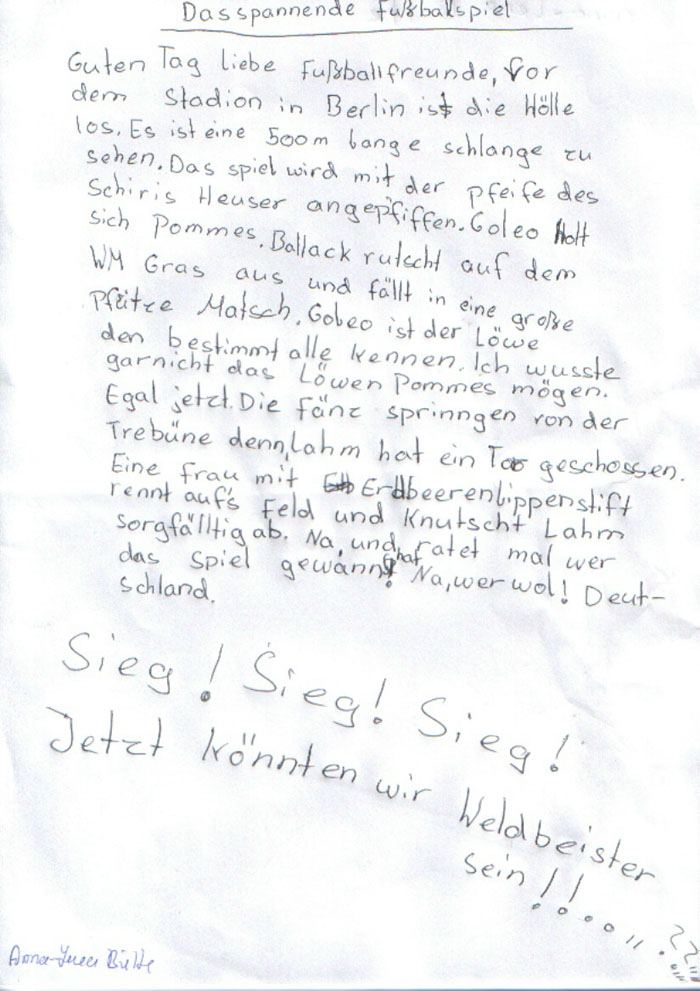 Das spannende Fußbalspiel
Guten Tag liebe Fußballfreunde, Vor
dem Stadion in Berlin ist die Hölle
los. Es ist eine 500m lange schlange zu
sehen. Das spiel wird mit der pfeife des
Schiris Heuser angepfiffen. Goleo Holt
sich Pommes. Ballack rutscht auf dem
WM Gras aus und fällt in eine große
Pfütze Matsch. Goleo ist der Löwe
den bestimmt alle kennen. Ich wusste
garnicht das Löwen Pommes mögen.
Egal jetzt. Die fänz sprinngen von der
Trebüne denn, lahm hat ein Tor geschossen.
Eine frau mit Erdbeerenlippenstift
rennt auf's Feld und Knutscht Lahm
sorgfälltig ab. Na, und ratet mal wer
das spiel gewann hat! Na, wer wol! Deut-
schland.
Sieg! Sieg! Sieg!
Jetzt könnten wir Weldbeister
sein!!...